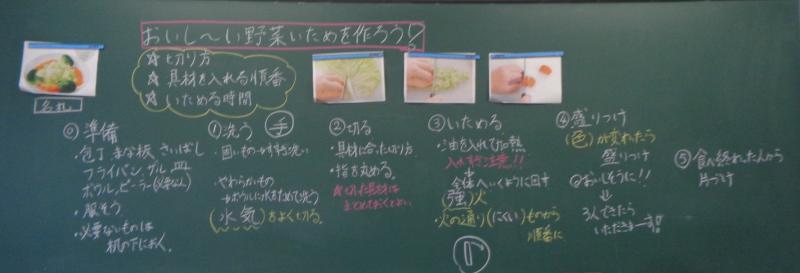 おいし〜い野菜いためを作ろう!!
☆切り方
☆具材を入れる順番
☆いためる時間
名札
⓪準備
・包丁 まな板 さいばし
フライパン、ザル 皿
ボウル、ピーラー(必要なら)
・服そう
・必要ないものは
机の下におく。
①洗う 手
・固いもの→すすぎ洗い
・やわらかいもの
→ボウルに水をためて洗う
(水気)をよく切る。
②切る
・具材に合った切り方
・指を丸める。
★切った具材は
まとめておくとよい。
③いためる
・油を入れて加熱
入れすぎ注意!!
全体へいくように回す
(強)火
・火の通り(にくい)ものから
順番に
④盛りつけ
(色)が変わったら
盛りつけ
おいしそうに!!
↓
3人できたら
いただきまーす!!
⑤食べ終わった人から
片づけ